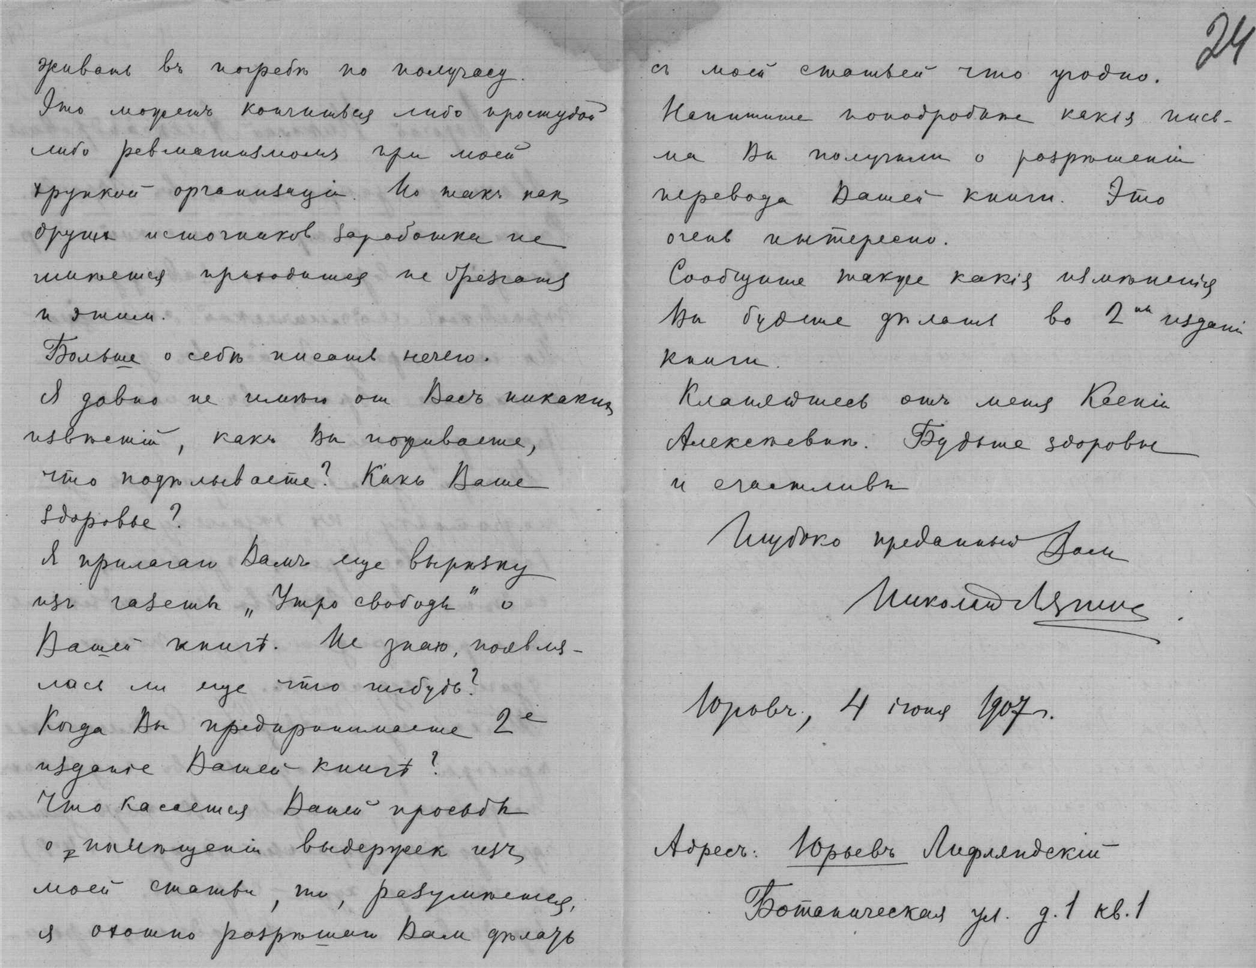 живать въ погребѣ по получасу.
Это можетъ кончиться либо простудой
либо ревматизмомъ при моей
хрупкой организаціи. Но такъ какъ
других источников заработка не
имѣется приходится не брезгать
и этим.
Больше о себѣ писать нечего.
Я давно не имѣю от Васъ никакихъ
извѣстій, какъ Вы поживаете,
что подѣлываете? Какъ Ваше
здоровье?
Я прилагаю Вамъ еще вырѣзку
изъ газеты „Утро свободы" о
Вашей книгѣ. Не знаю, появля-
лась ли еще что нибудь?
Когда Вы предпринимаете 2е
изданіе Вашей книги?
Что касается Вашей просьбы
о помѣщеніи выдержек изъ
моей статьи, то, разумѣется,
я охотно разрѣшаю Вам дѣлать
24
съ моей статьей что угодно.
Напишите поподробнѣе какія пись-
ма Вы получили о разрѣшеніи
перевода Вашей книги. Это
очень интересно.
Сообщите также какія измѣненія
Вы будете дѣлать во 2мъ изданіи
книги.
Кланяйтесь отъ меня Ксеніи
Алексѣевнѣ. Будьте здоровы
и счастливы
Глубоко преданный Вам
Николай
Юрьевъ, 4 іюня 1907 г.
Адресъ: Юрьевъ Лифляндскій
Ботаническая ул. д. 1 кв. 1